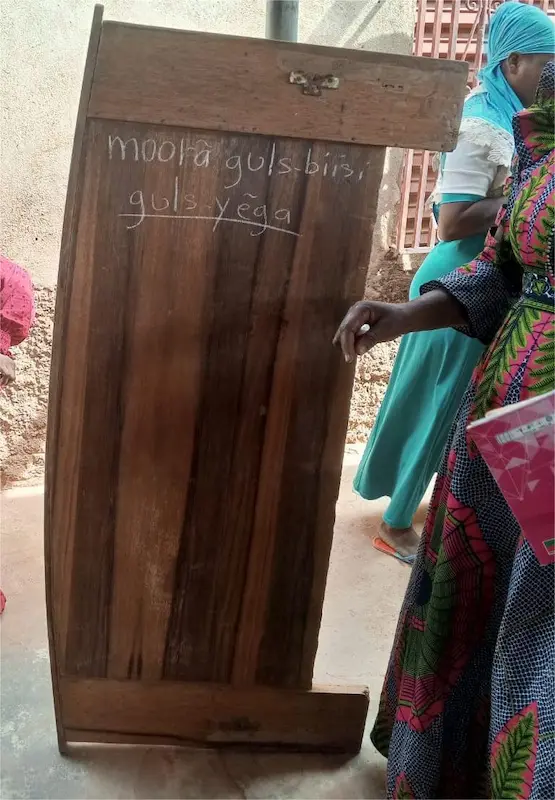 moorã guls-biisi
guls-yẽga